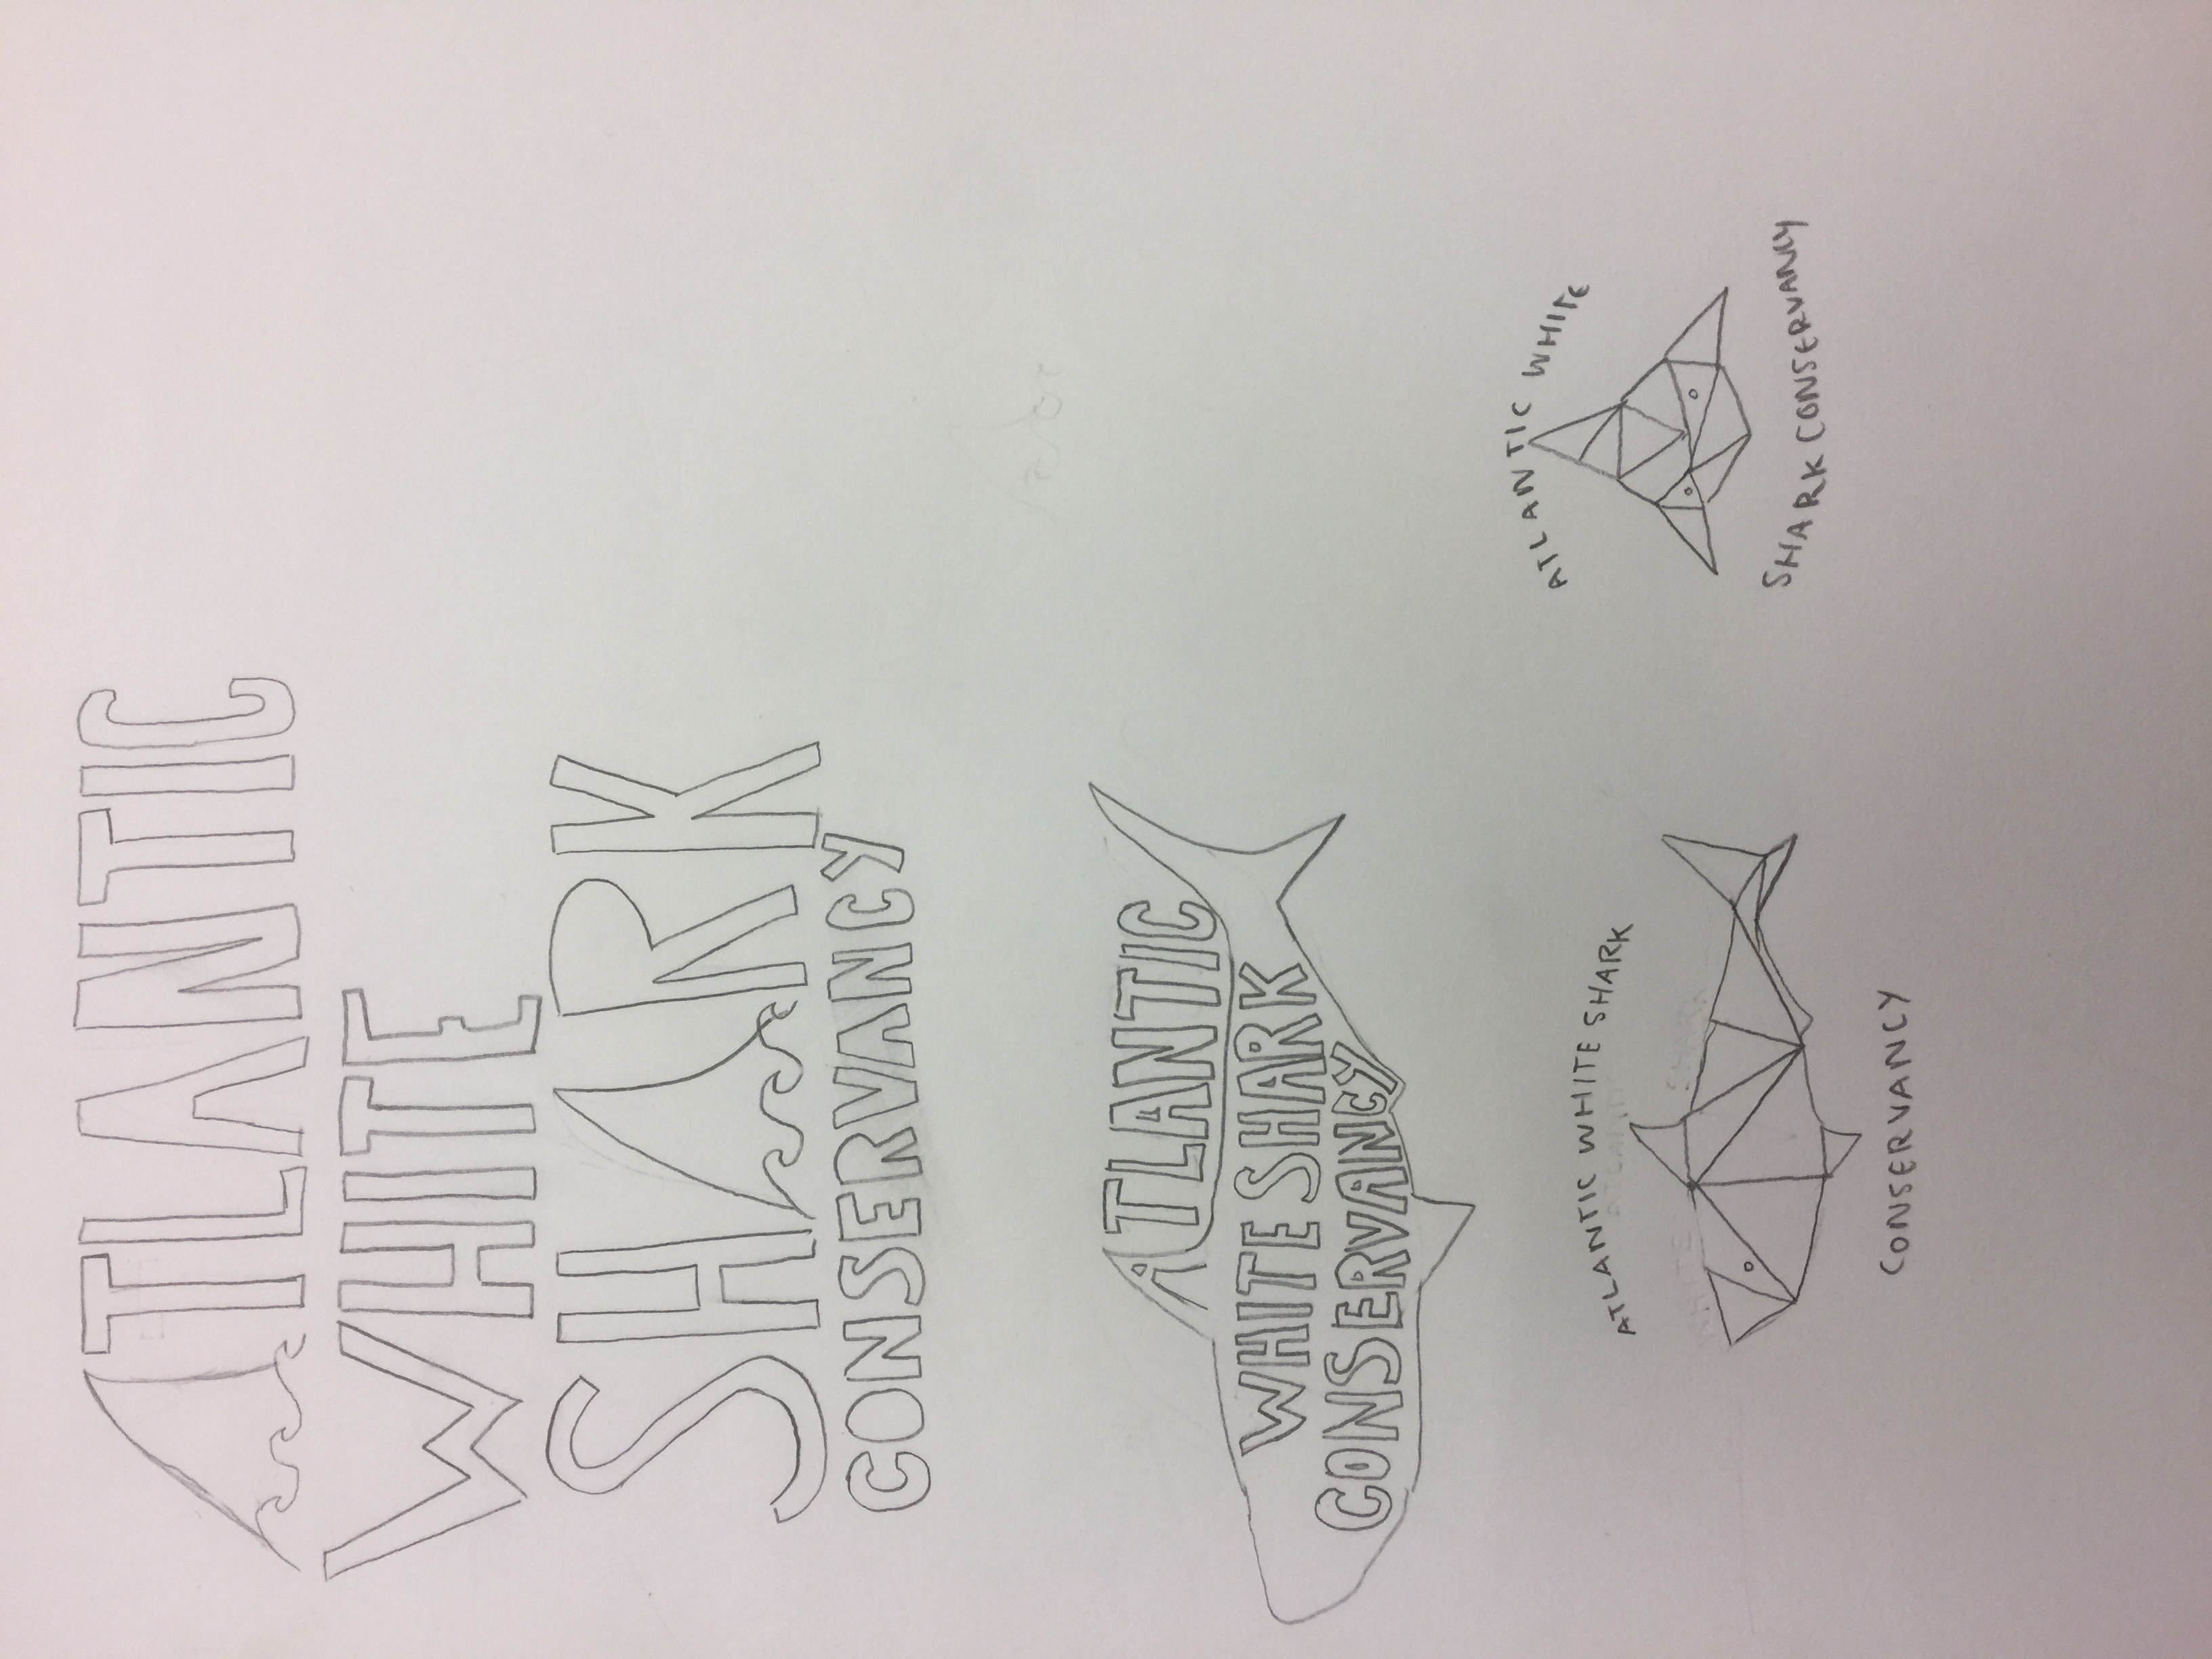 ATLANTIC
WHITE
SHARK
CONSERVANCY
ATLANTIC
WHITE SHARK
CONSERVANCY
ATLANTIC WHITE SHARK
CONSERVANCY
ATLANTIC WHITE
SHARK CONSERVANCY